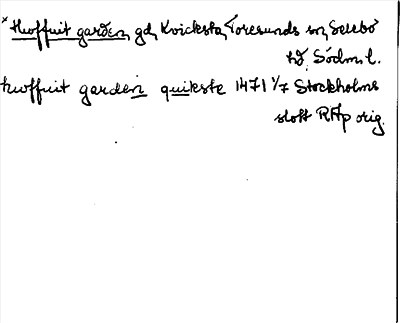 * Huoffuit garden, gd, Kvicksta, Toresunds sn, Selebo
hd, Södm. l.
huoffuit garden quikste 1471 1/7 Stockholms
slott RAp orig.